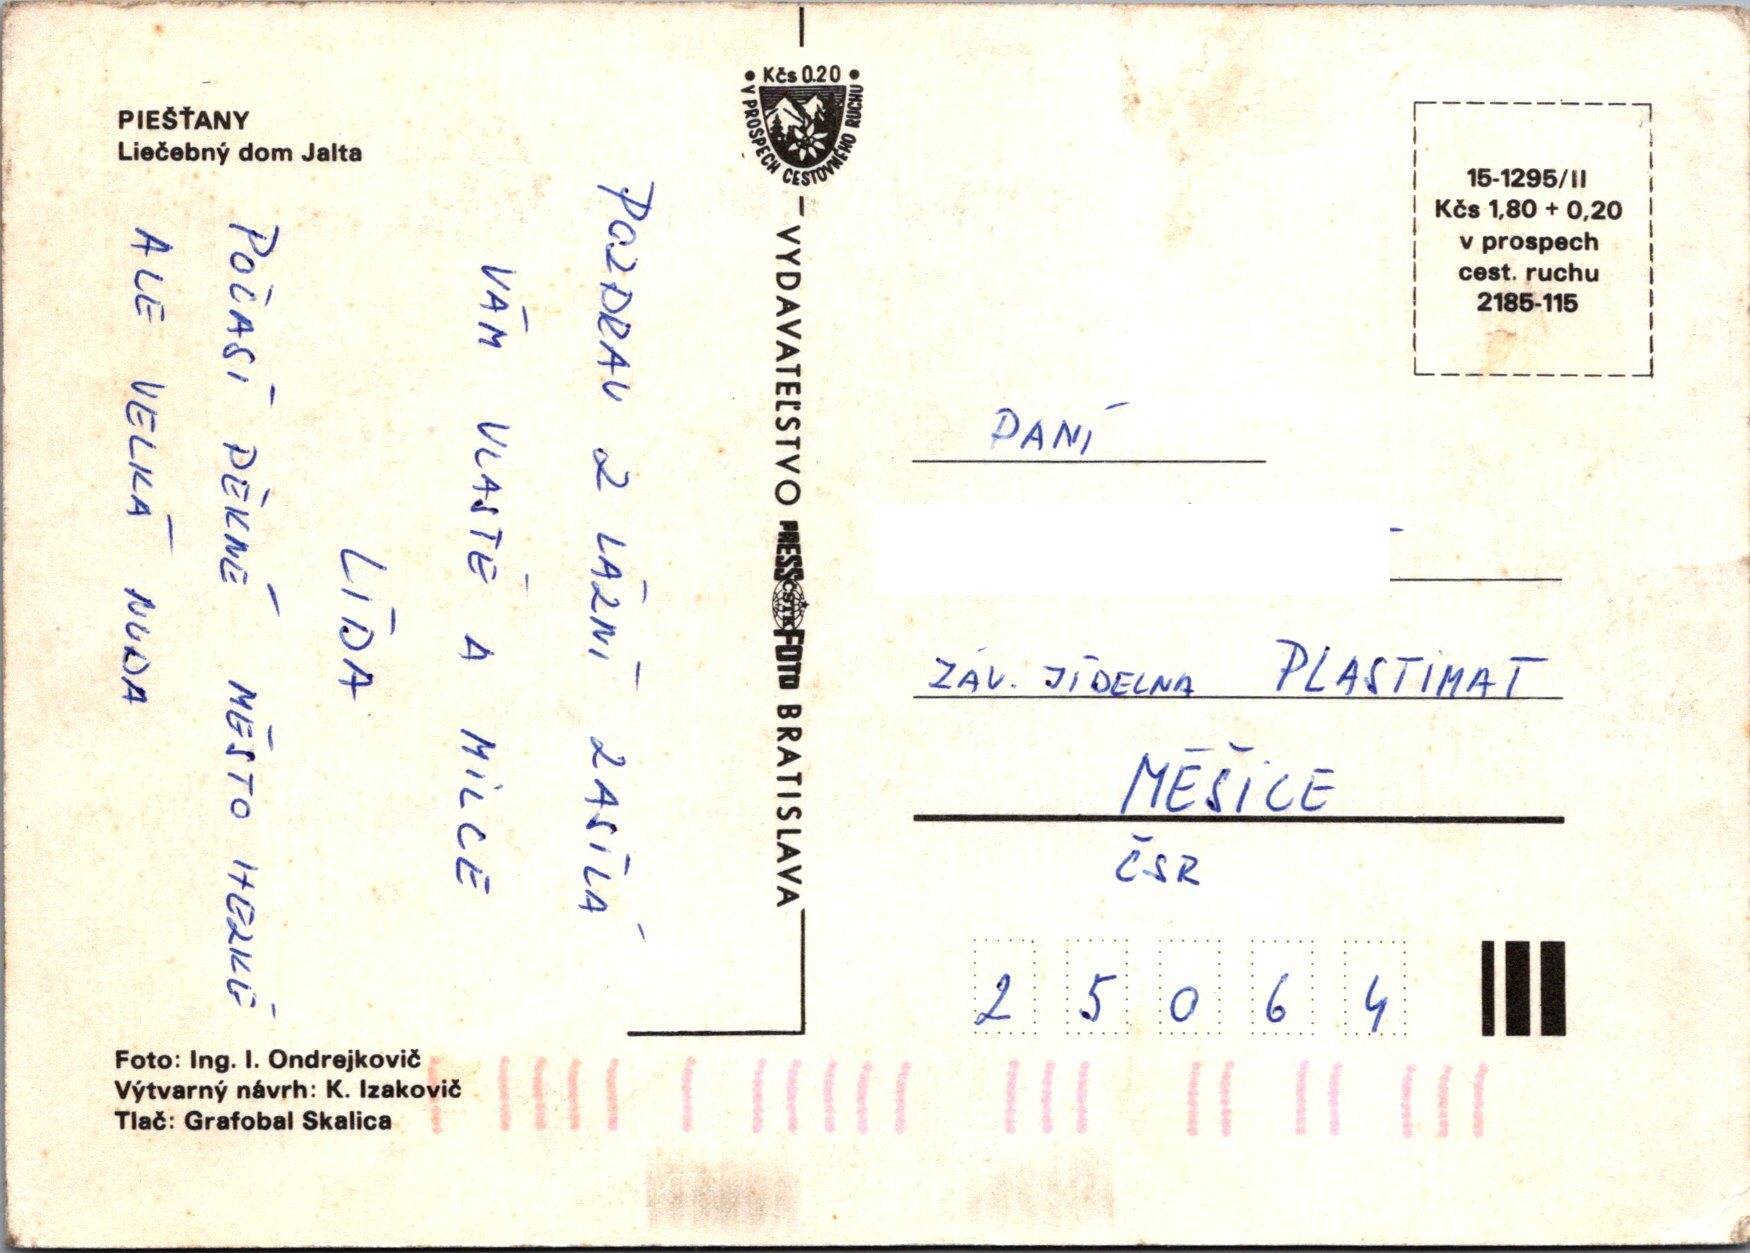 PIEŠŤANY
Liečebný dom Jalta
POZDRAV Z LÁZNÍ ZASÍLÁ
VÁM VLASTĚ A MILCE
LÍDA
POČASÍ PĚKNÉ MĚSTO HEZKÉ
ALE VELKÁ NUDA
Foto: Ing. I. Ondrejkovič
Výtvarný návrh: K. Izakovič
Tlač: Grafobal Skalica
• Kčs 0.20 •
V PROSPECH CESTOVNÉHO RUCHU
VYDAVATEĽSTVO PRESSFOTO BRATISLAVA
ČSTK
15-1295/II
Kčs 1,80 + 0,20
v prospech
cest. ruchu
2185-115
PANÍ
ZÁV. JÍDELNA PLASTIMAT
MĚŠICE
ČSR
25064